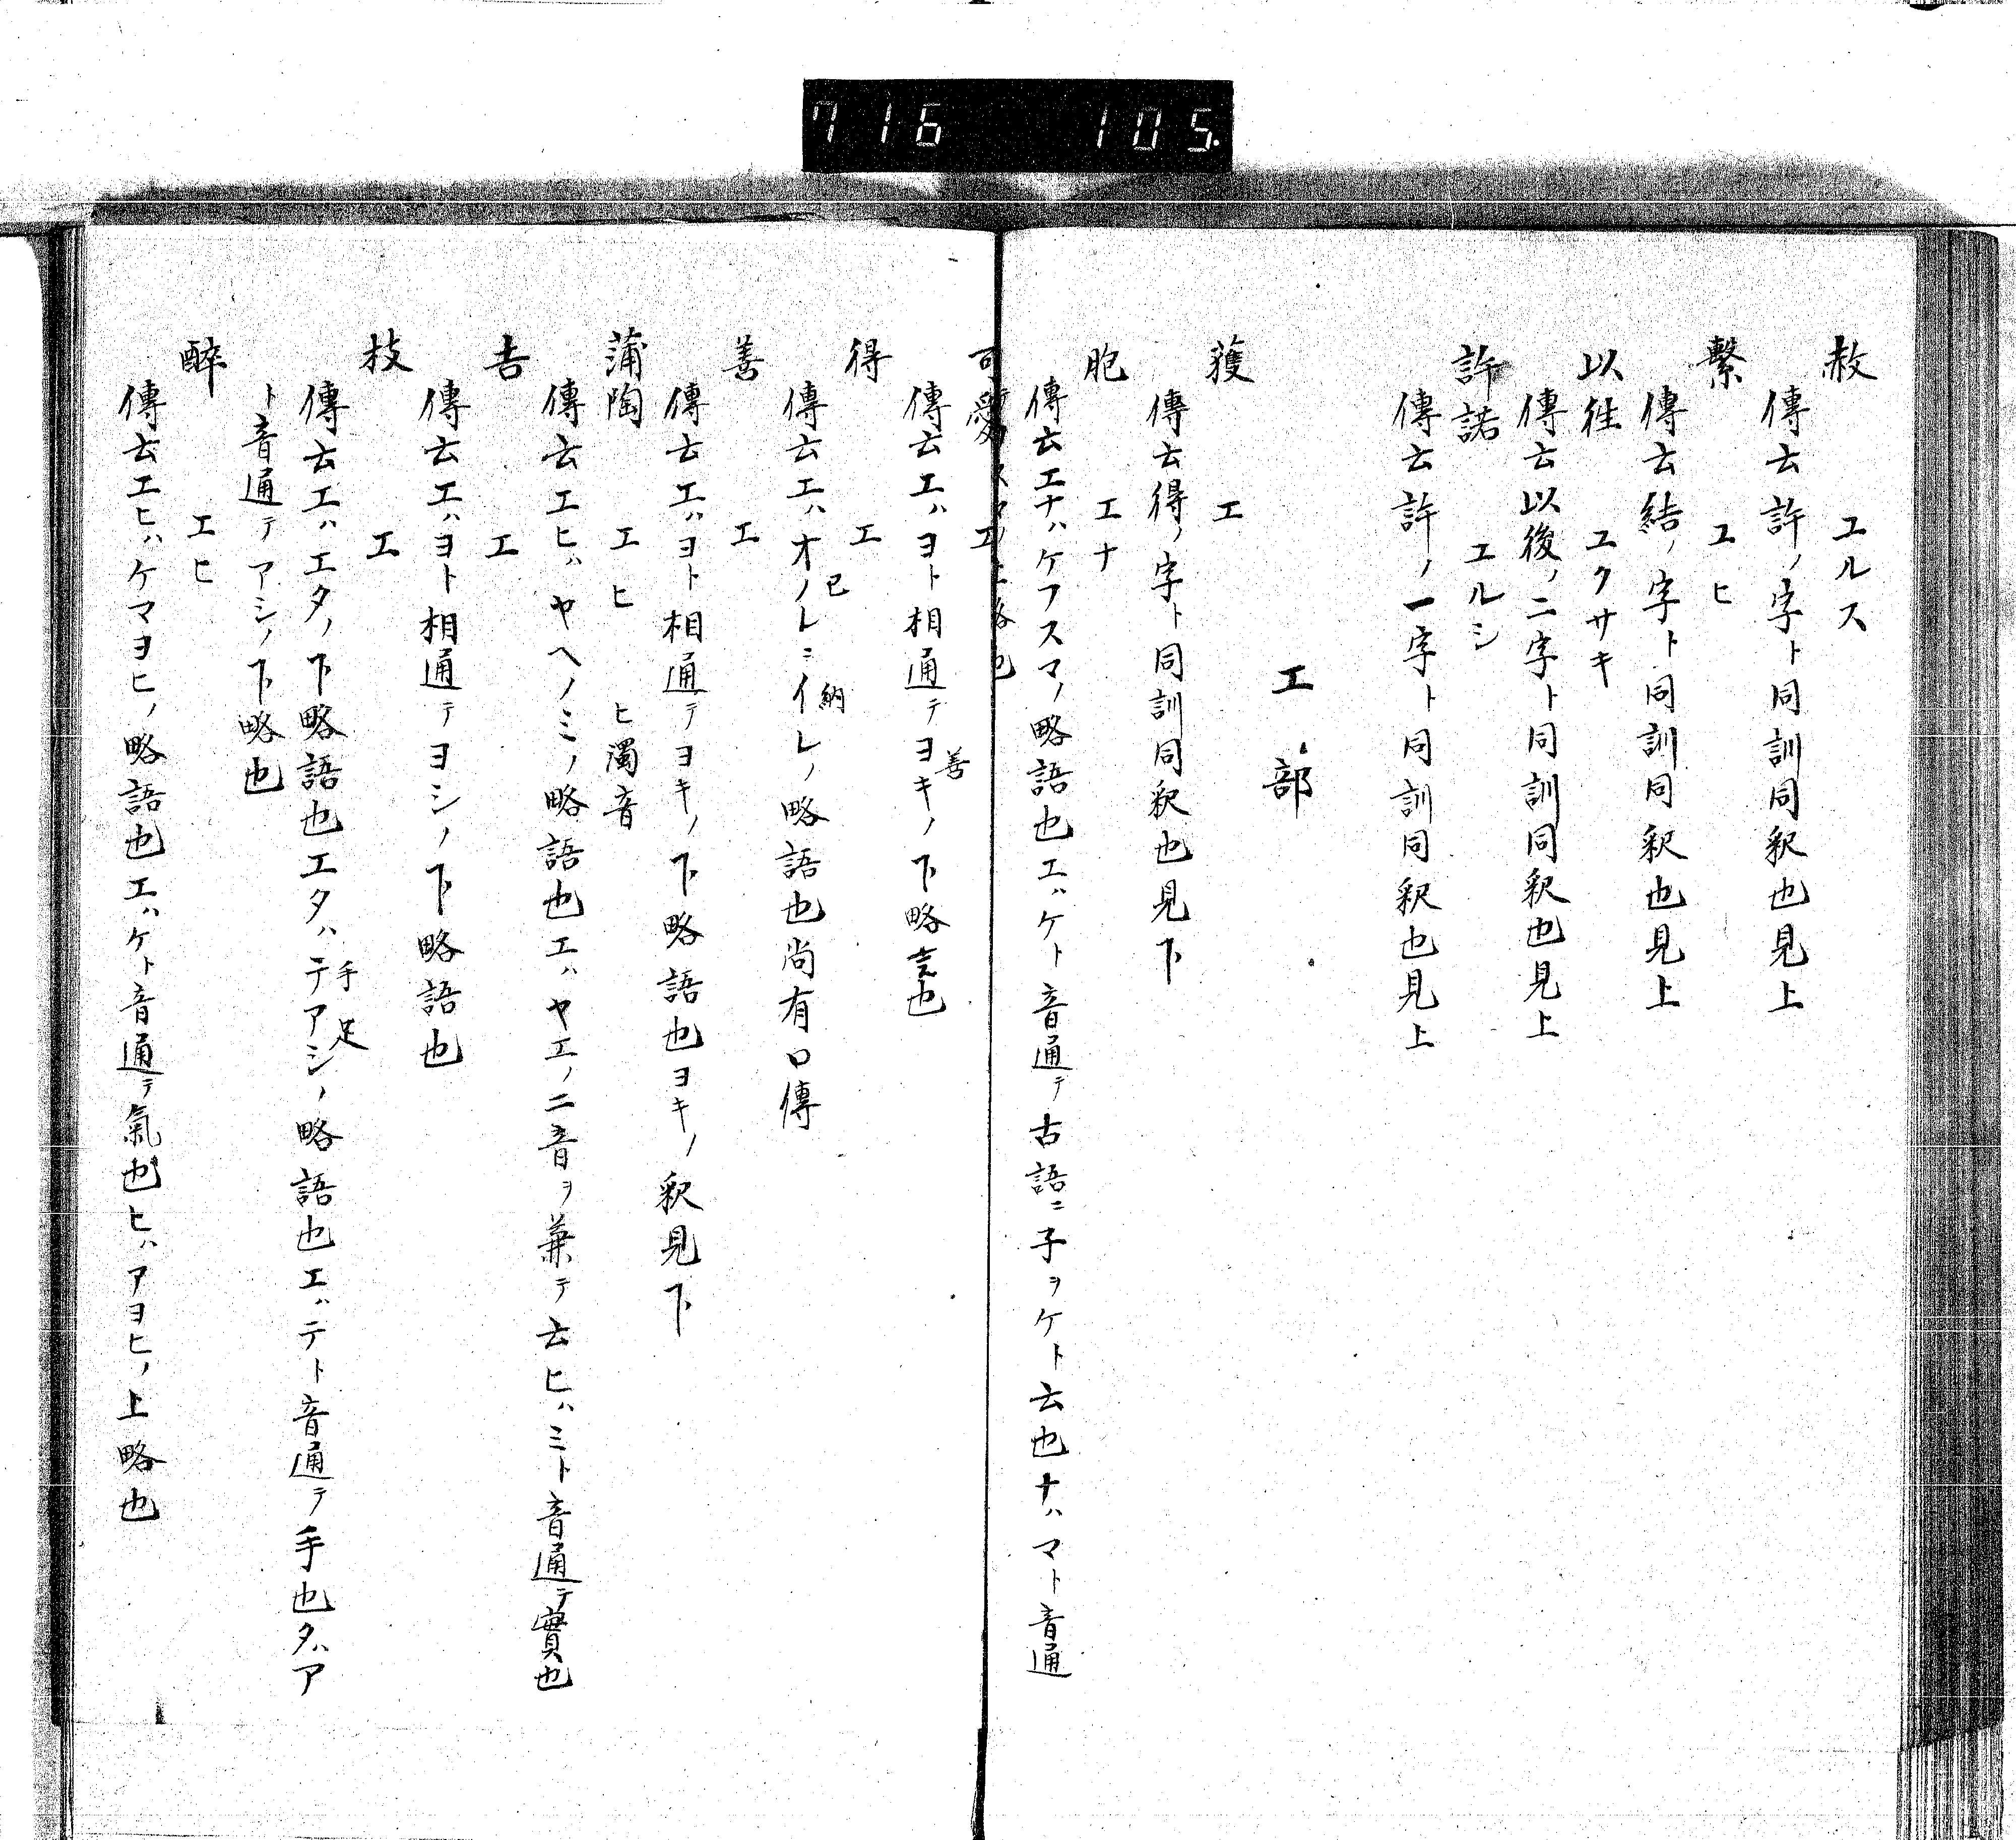 716 105.
赦 ユルス
傳云許ノ字ト同訓同釈也見上
繫 ユヒ
傳云結ノ字ト同訓同釈也見上
以往 ユクサキ
傳云以後ノ二字ト同訓同釈也見上
許諾 ユルシ
傳云許ノ一字ト同訓同釈也見上
エ部
獲 エ
傳云得ノ字ト同訓同釈也見下
胞 エナ
傳云エナハケフスマノ略語也エハケト音通テ古語ニ子ヲケト云也ナハマト音通
可愛 エ
傳云エハヨト相通テヨキ善ノ下略言也
得 エ
傳云エハオノレ己ニイレ納ノ略語也尚有口傳
善 エ
傳云エハヨト相通テヨキノ下略語也ヨキノ釈見下
蒲陶 エヒ ヒ濁音
傳云エヒハヤヘノミノ略語也エハヤエノ二音ヲ兼テ云ヒハミト音通テ實也
吉 エ
傳云エハヨト相通テヨシノ下略語也
枝 エ
傳云エハエタノ下略語也エタハテアシ手足ノ略語也エハテト音通テ手也タハア
ト音通テアシノ下略也
醉 エヒ
傳云エヒハケマヨヒノ略語也エハケト音通テ氣也ヒハアヨヒノ上略也